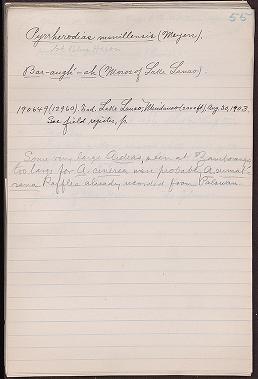 55
Pyrrherodias manillensis (Meyen).
Bar-augh-ah (Moros of Lake Lanao).
190649 (12960). Lake Lanao, Mindanao (2200 ft), Aug. 30, 1903.
See field register, p.
Some very large Ardeas, seen at Zamboanga,
too large for A. cinerea were probably A. sumat-
rana Raffles already recorded from Palawan.